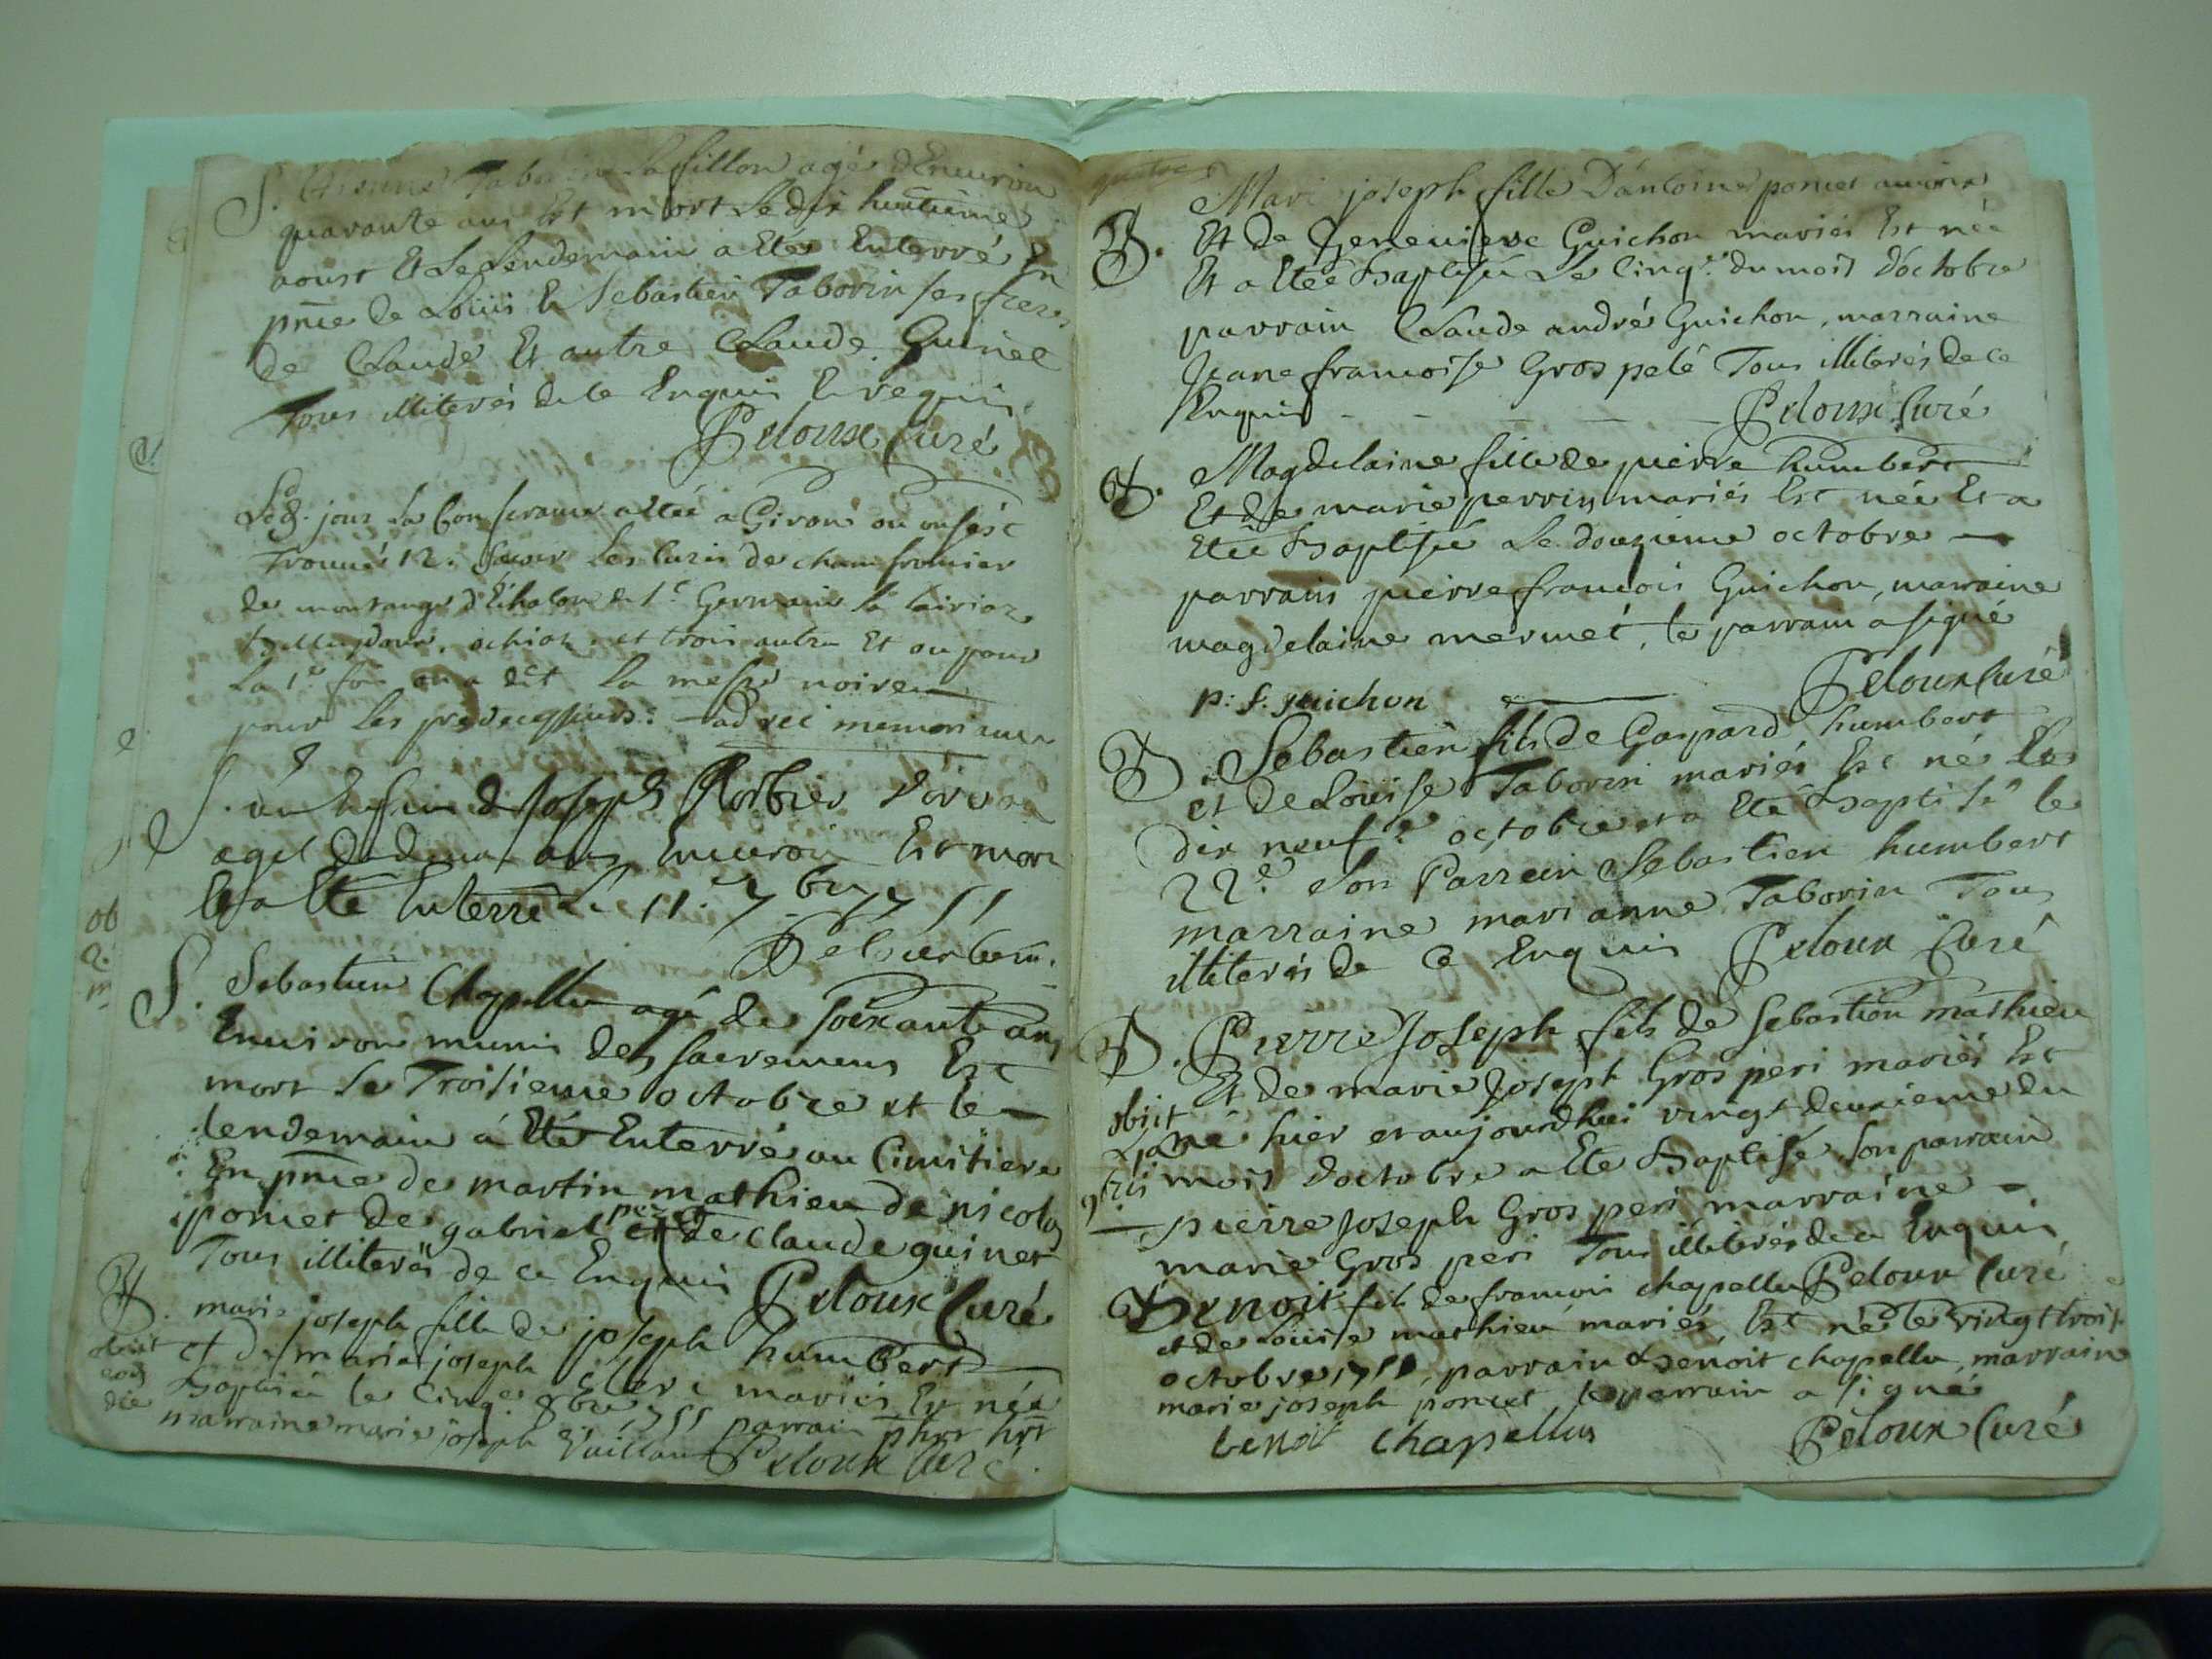 S. Taborin La fillon agé d'Environ
quarante ans Est mort Le dix huitieme
aoust Et Le Lendemain a Eté Enterré En
pn̄ce de Loüis & Sebastien Taborin ses freres
de Claude Et autre Claude Guinet
Tous illiterés de ce Enquis & requis
Peloux Curé
jour La Confrairie a eté a Giron ou on s'est
Trouvé 12. sçavoir Les Curés de chamfromier
de montange d'Echalon de St Germain La
et trois autres Et on pour
La 1e fois on a dit La messe noire
pour Les predecesseurs: ad rei memoriam
S. un Enfant de Joseph
agé de deux ans Environ Est mort
Et a Eté Enterré Le 11. 7bre 1755
Peloux Curé
S. Sebastien Chapellu agé de soixante ans
Environ munis des sacremens Est
mort Le Troisieme octobre et le
lendemain á Eté Enterré au Cimitiere
En pn̄ce de martin mathieu de nicolas
poncet de gabriel per et de Claude guinet
Tous illiterés de ce Enquis Peloux Curé
B. marie joseph fille de joseph humbert
obiit
eod
die
et de marie joseph mariés Est née
Baptisée le Cinqe 8bre 1755 parrain
marraine marie joseph Vaillant Peloux Curé
Mari joseph fille D'antoine poncet
B. Et de Genevieve Guichon mariés Est née
Et a Etée Baptisée Le Cinqe du mois D'octobre
parrain Claude andré Guichon, marraine
Jeane francoise Gros pelé Tous illiterés de ce
Enquis Peloux Curé
B. Magdelaine fille de pierre humbert
Et de marie perrin mariés Est née Et a
Etée Baptisée Le douzieme octobre
parrain pierre francois Guichon, marraine
magdelaine mermet, le parrain a signé
p: f: guichon Peloux Curé
B. Sebastien fils de Gaspard humbert
et de Loüise Taborin mariés Est né Le
dix neufe octobre et a Eté Baptisé le
22e Son Parrain Sebastien humbert
marraine mari anne Taborin Tous
illiterés de ce Enquis Peloux Curé
B. Pierre Joseph fils de sebastien mathieu
Et de marie Joseph Gros peri mariés Est
obiit
né hier et aujourdhui vingt deuxieme du
mois d'octobre a Eté Baptisé son parrain
pierre Joseph Gros peri marraine
marie Gros peri Tous illiterés de ce Enquis
Peloux Curé
Benoit fils de francois chapellu
et de Loüise mathieu mariés Est né le vingt trois
octobre 1755, parrain Benoit chapellu, marraine
marie joseph poncet le parrain a signé
benoit chapellus Peloux Curé